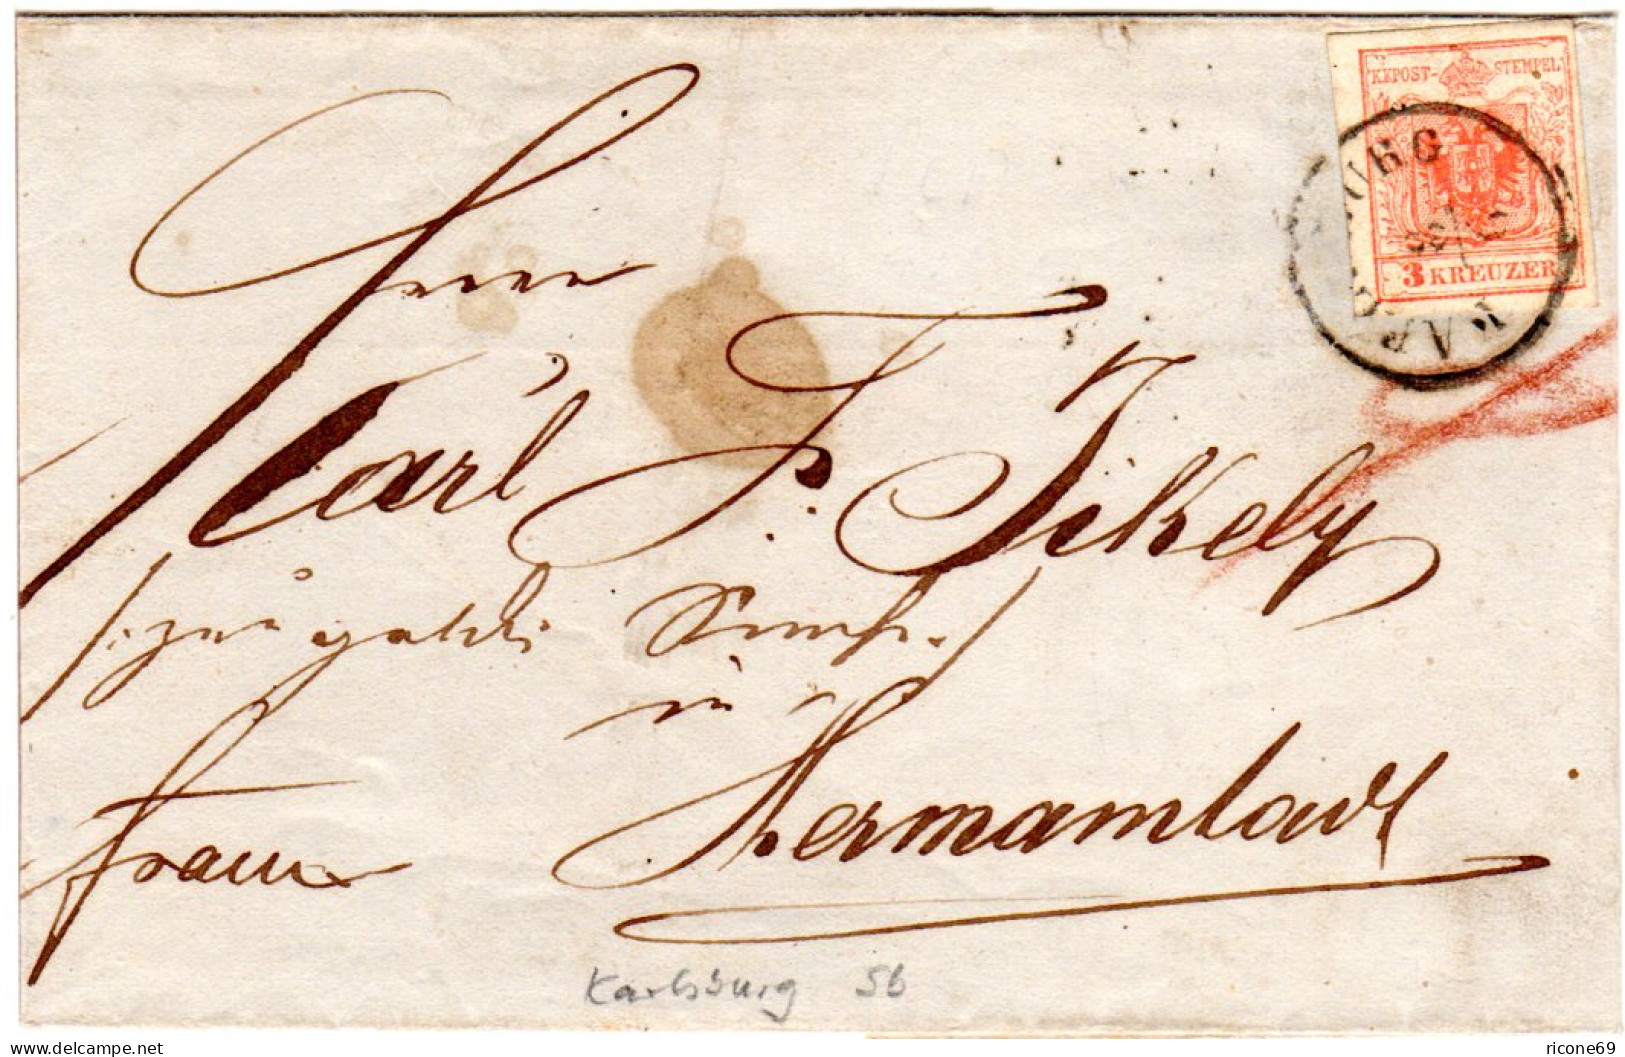 KKPOST-STEMPEL
3 KREUZER
Herrn
Carl F. Jikely
in
Hermanstadt
franco
Karlsburg 5b
www.delcampe.net
ricone69